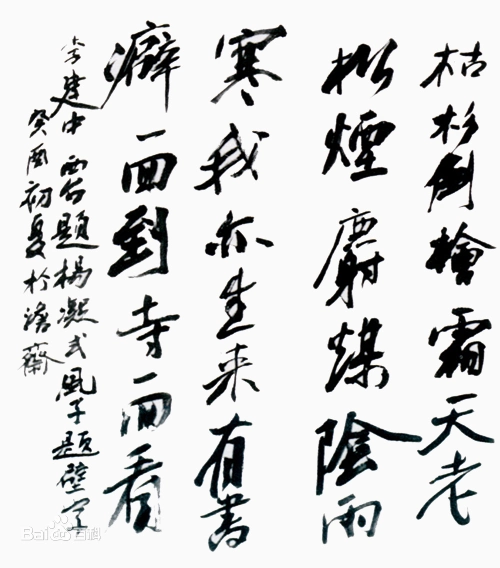 枯杉倒檜霜天老
松煙麝煤陰雨
寒我亦生来有書
癖一回到寺一回看
李建中西台題楊凝式風子題壁
癸酉初夏於澹齋
Bai百科